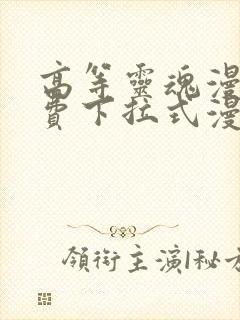 高等靈魂漫
費下拉式漫
領銜主演|秘方